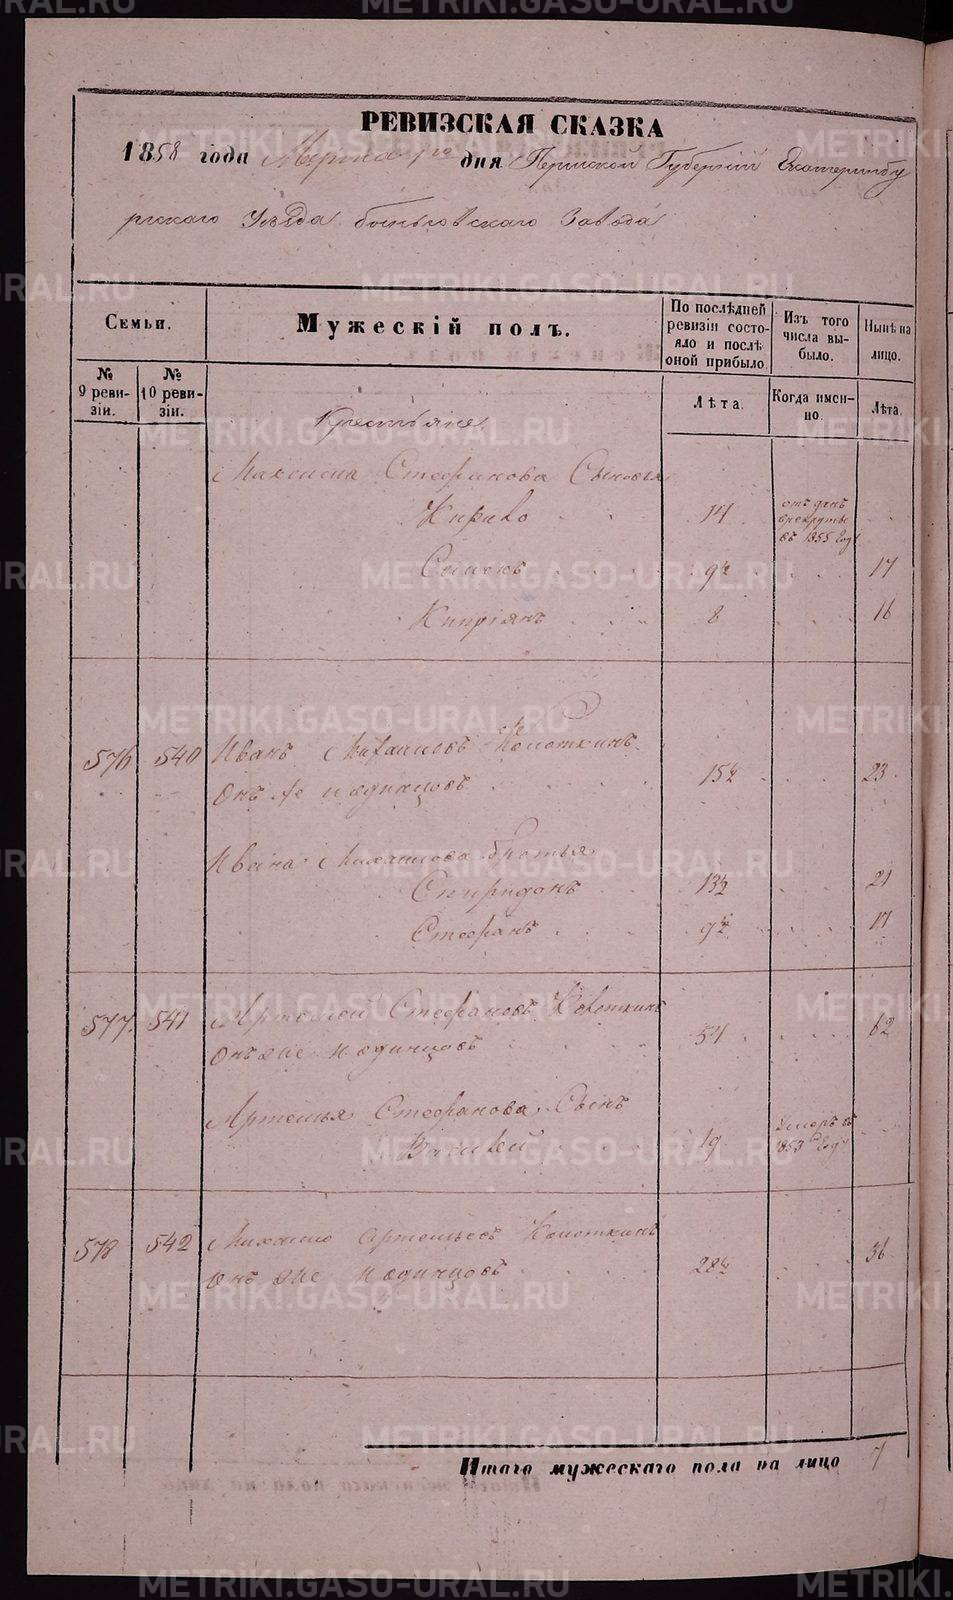 РЕВИЗСКАЯ СКАЗКА
1858 года Марта дня Пермской Губернiи Екатеринбу
ргскаго Уѣзда Завода
Семьи.
Мужескiй полъ.
По послѣдней ревизiи состояло и послѣ оной прибыло.
Изъ того числа выбыло.
Нынѣ на лицо.
№ 9 ревизiи.
№ 10 ревизiи.
Лѣта.
Когда именно.
Лѣта.
Крестьяне
Максима Стефанова Сыновья
Кирило 14 отданъ врекруты въ 1855 Году
Семенъ 9½ 17
Кипрiянъ 8 16
576 540 Иванъ Михаиловъ Колоткинъ
Онъ же Надинцовъ 15½ 23
Ивана Михаилова братья
Спиридонъ 13½ 21
Стефанъ 9½ 17
577 541 Артемей Стефановъ Колоткинъ
Онъ же Надинцовъ 54 62
Артемья Стефанова Сынъ
Василей 19 Умеръ въ 1853 Году
578 542 Михаило Артемьевъ Колоткинъ
Онъ же Надинцовъ 28½ 36
Итого мужескаго пола на лицо 7
METRIKI.GASO-URAL.RU